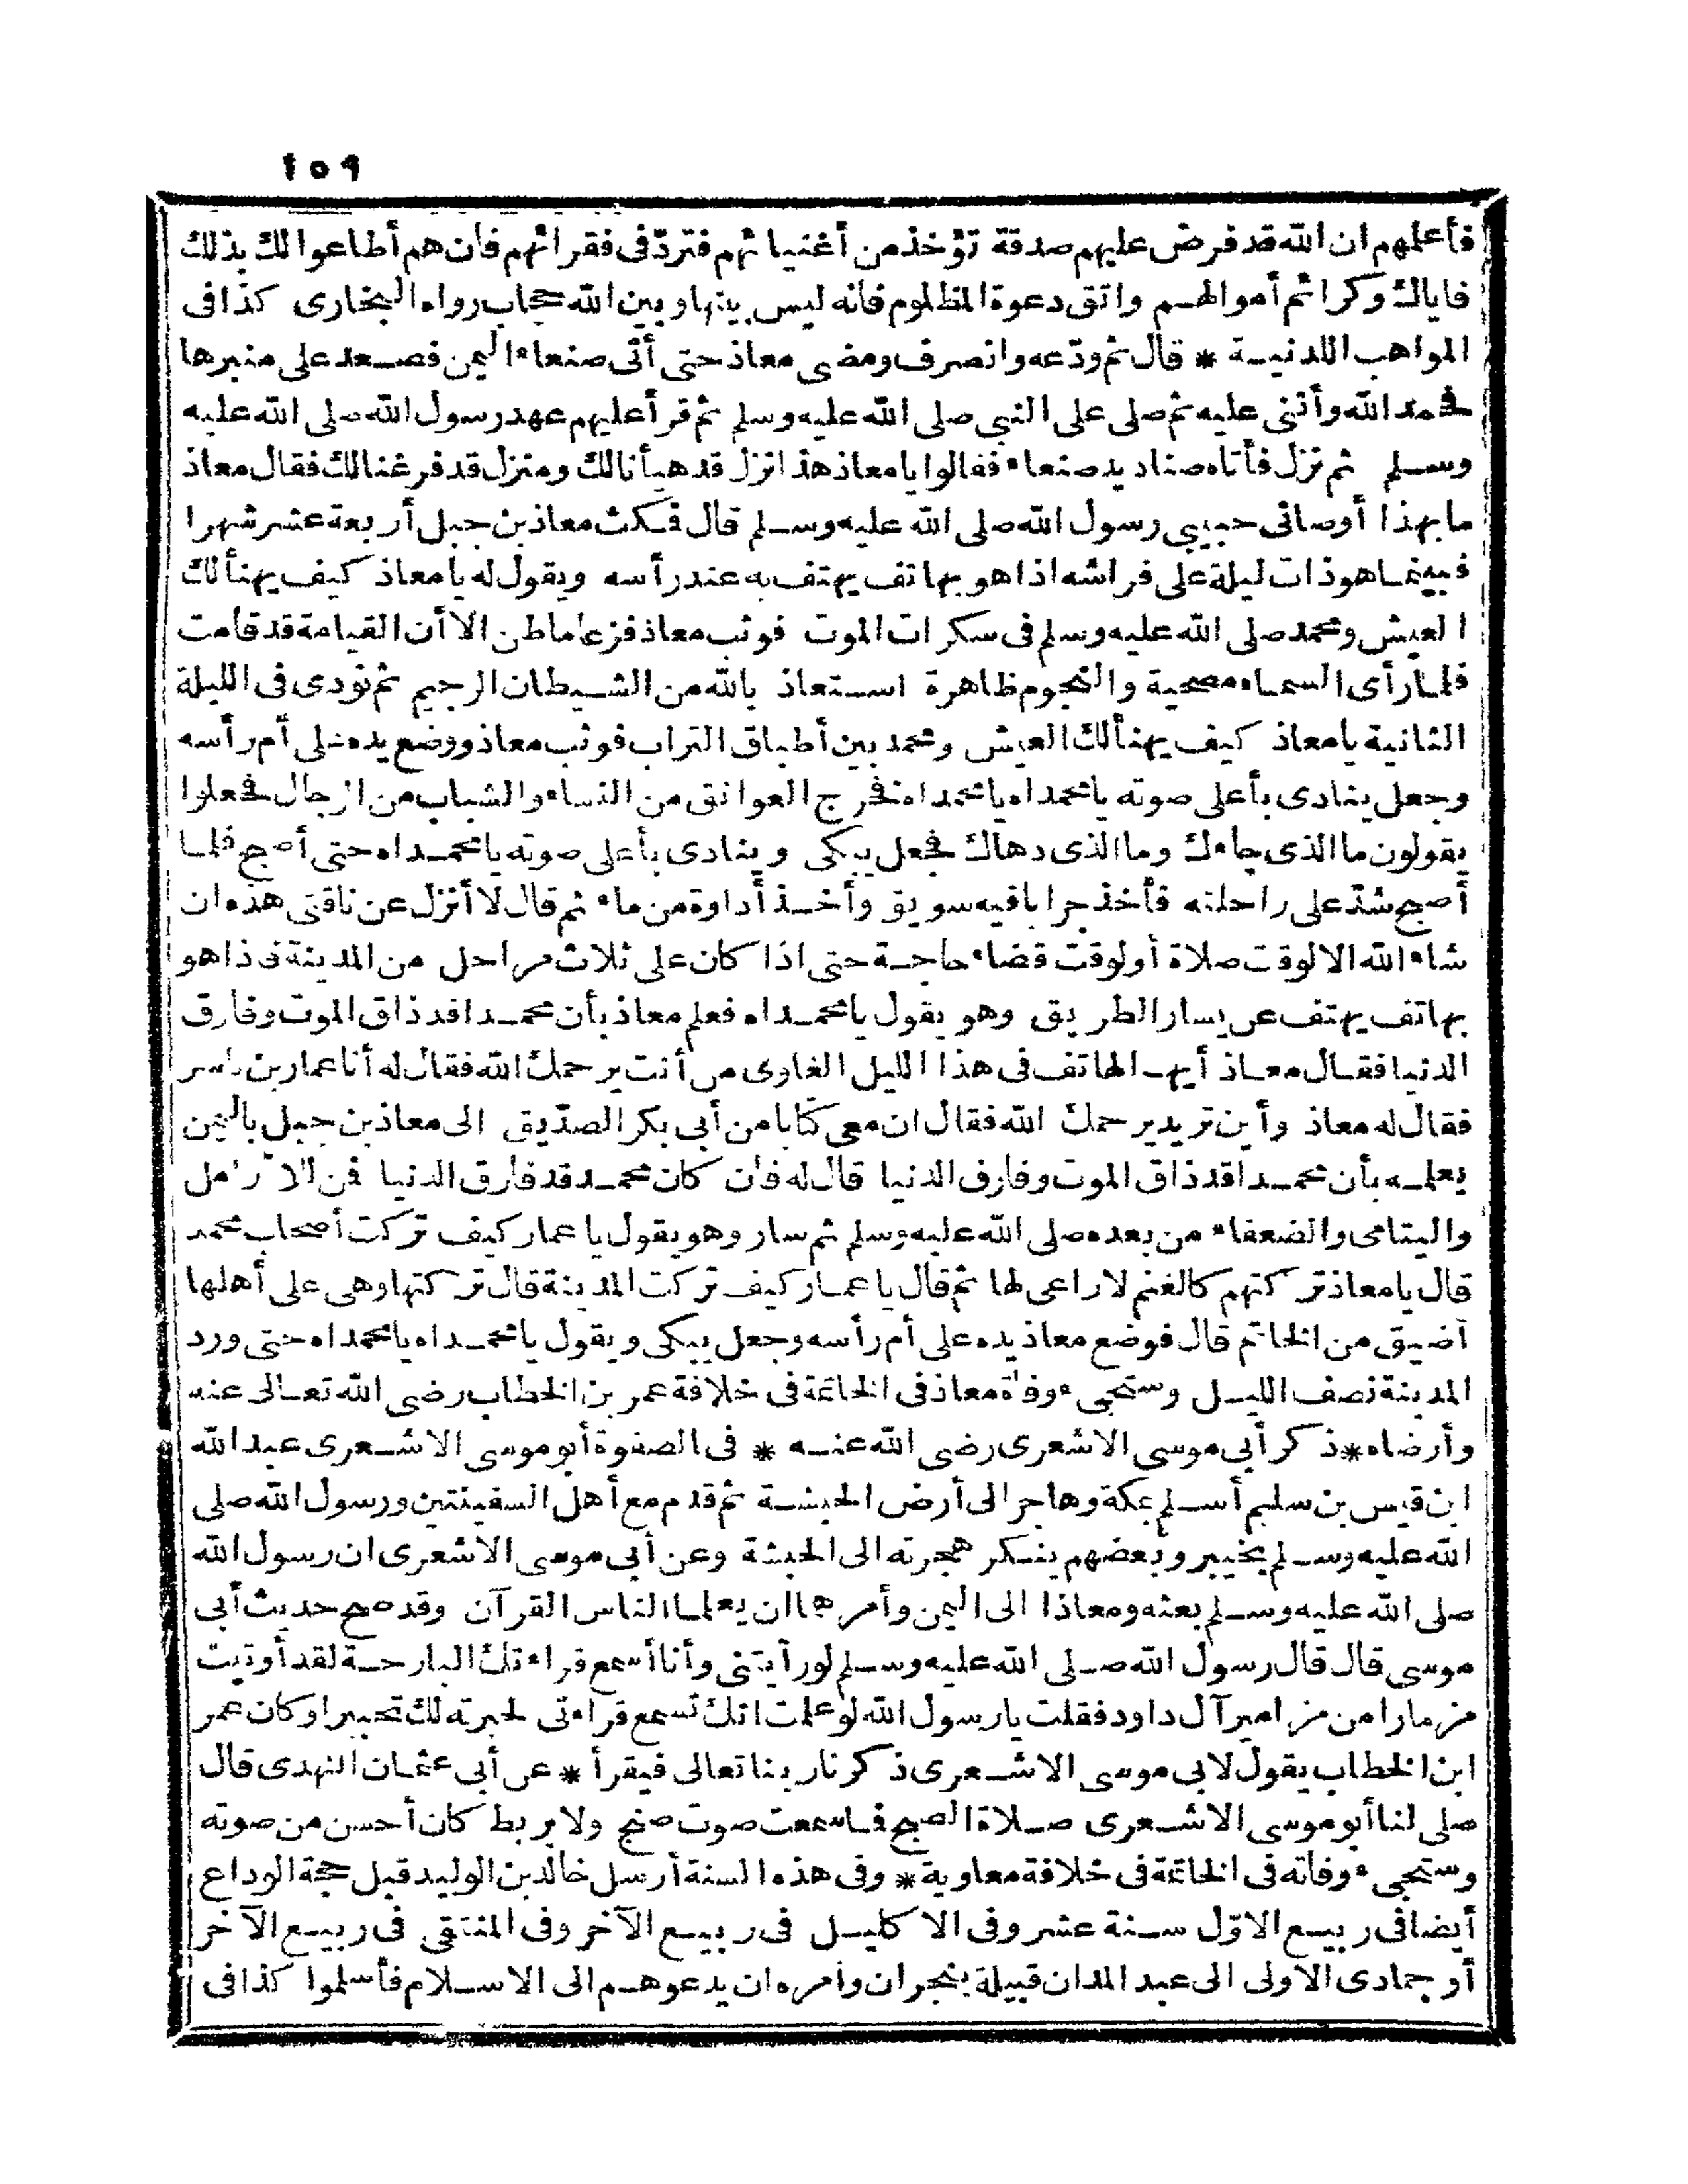 ١٥٩
فأعلمهم ان الله قد فرض عليهم صدقة تؤخذ من أغنيائهم فتردّ فى فقرائهم فان هم أطاعوا لك بذلك
فاياك وكرائم أموالهم واتق دعوة المظلوم فانه ليس بينها وبين الله حجاب رواه البخارى كذا فى
المواهب اللدنية * قال ثم ودّعه وانصرف ومضى معاذ حتى أتى صنعاء اليمن فصعد على منبرها
فحمد الله وأثنى عليه ثم صلى على النبى صلى الله عليه وسلم ثم قرأ عليهم عهد رسول الله صلى الله عليه
وسلم ثم نزل فأتاه صناديد صنعاء فقالوا يا معاذ هذا نزل قد هيأنا لك ومنزل قد فرغنا لك فقال معاذ
ما بهذا أوصانى حبيبى رسول الله صلى الله عليه وسلم قال فمكث معاذ بن جبل أربعة عشر شهرا
فبينما هو ذات ليلة على فراشه اذا هو بهاتف يهتف به عند رأسه ويقول له يا معاذ كيف يهنأ لك
العيش ومحمد صلى الله عليه وسلم فى سكرات الموت فوثب معاذ فزعا ما ظن الا أن القيامة قد قامت
فلما رأى السماء مصحية والنجوم ظاهرة استعاذ بالله من الشيطان الرجيم ثم نودى فى الليلة
الثانية يا معاذ كيف يهنأ لك العيش ومحمد بين أطباق التراب فوثب معاذ ووضع يده على أم رأسه
وجعل ينادى بأعلى صوته يا محمداه يا محمداه فخرج العواتق من النساء والشباب من الرجال فجعلوا
يقولون ما الذى جاءك وما الذى دهاك فجعل يبكى وينادى بأعلى صوته يا محمداه حتى أصبح فلما
أصبح شدّ على راحلته فأخذ جرابا فيه سويق وأخذ أداوة من ماء ثم قال لا أنزل عن ناقتى هذه ان
شاء الله الا لوقت صلاة أو لوقت قضاء حاجة حتى اذا كان على ثلاث مراحل من المدينة فاذا هو
بهاتف يهتف عن يسار الطريق وهو يقول يا محمداه فعلم معاذ بأن محمدا قد ذاق الموت وفارق
الدنيا فقال معاذ أيها الهاتف فى هذا الليل الغاوى من أنت يرحمك الله فقال له أنا عمار بن ياسر
فقال له معاذ وأين تريد يرحمك الله فقال ان معى كتابا من أبى بكر الصدّيق الى معاذ بن جبل باليمن
يعلمه بأن محمدا قد ذاق الموت وفارق الدنيا قال له فان كان محمد قد فارق الدنيا فمن للأرامل
واليتامى والضعفاء من بعده صلى الله عليه وسلم ثم سار وهو يقول يا عمار كيف تركت أصحاب محمد
قال يا معاذ تركتهم كالغنم لا راعى لها ثم قال يا عمار كيف تركت المدينة قال تركتها وهى على أهلها
أضيق من الخاتم قال فوضع معاذ يده على أم رأسه وجعل يبكى ويقول يا محمداه يا محمداه حتى ورد
المدينة نصف الليل وستجىء وفاة معاذ فى الخاتمة فى خلافة عمر بن الخطاب رضى الله تعالى عنه
وأرضاه * ذكر أبى موسى الاشعرى رضى الله عنه * فى الصفوة أبو موسى الاشعرى عبد الله
ابن قيس بن سليم أسلم بمكة وهاجر الى أرض الحبشة ثم قدم مع أهل السفينتين ورسول الله صلى
الله عليه وسلم بخيبر وبعضهم ينكر هجرته الى الحبشة وعن أبى موسى الاشعرى ان رسول الله
صلى الله عليه وسلم بعثه ومعاذا الى اليمن وأمرهما ان يعلما الناس القرآن وقد صح حديث أبى
موسى قال قال رسول الله صلى الله عليه وسلم لو رأيتنى وأنا أسمع قراءتك البارحة لقد أوتيت
مزمارا من مزامير آل داود فقلت يا رسول الله لو علمت انك تسمع قراءتى لحبرته لك تحبيرا وكان عمر
ابن الخطاب يقول لابى موسى الاشعرى ذكرنا ربنا تعالى فيقرأ * عن أبى عثمان النهدى قال
صلى لنا أبو موسى الاشعرى صلاة الصبح فما سمعت صوت صنج ولا بربط كان أحسن من صوته
وستجىء وفاته فى الخاتمة فى خلافة معاوية * وفى هذه السنة أرسل خالد بن الوليد قبل حجة الوداع
أيضا فى ربيع الاوّل سنة عشر وفى الاكليل فى ربيع الآخر وفى المنتقى فى ربيع الآخر
أو جمادى الاولى الى عبد المدان قبيلة بنجران وأمره ان يدعوهم الى الاسلام فأسلموا كذا فى